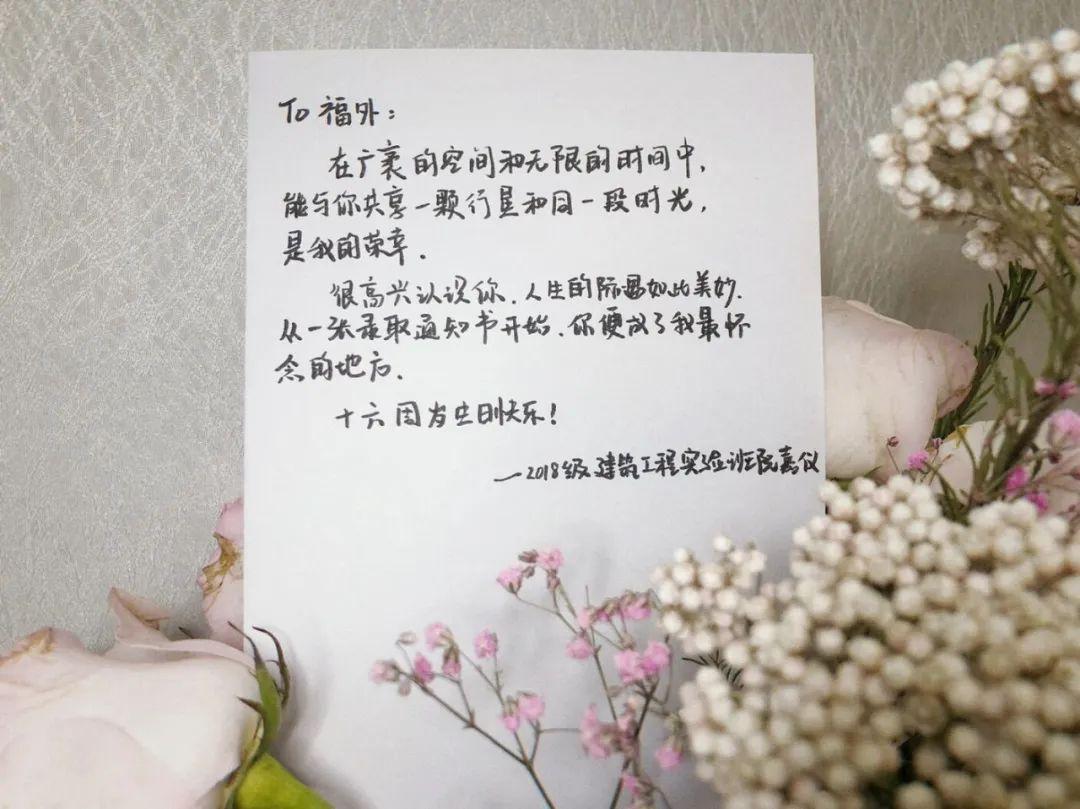 To 福外：
在广袤的空间和无限的时间中，
能与你共享一颗行星和同一段时光，
是我的荣幸．
很高兴认识你．人生的际遇如此美妙．
从一张录取通知书开始．你便成了我最怀
念的地方．
十六周岁生日快乐！
—2018级建筑工程实验班阮嘉仪